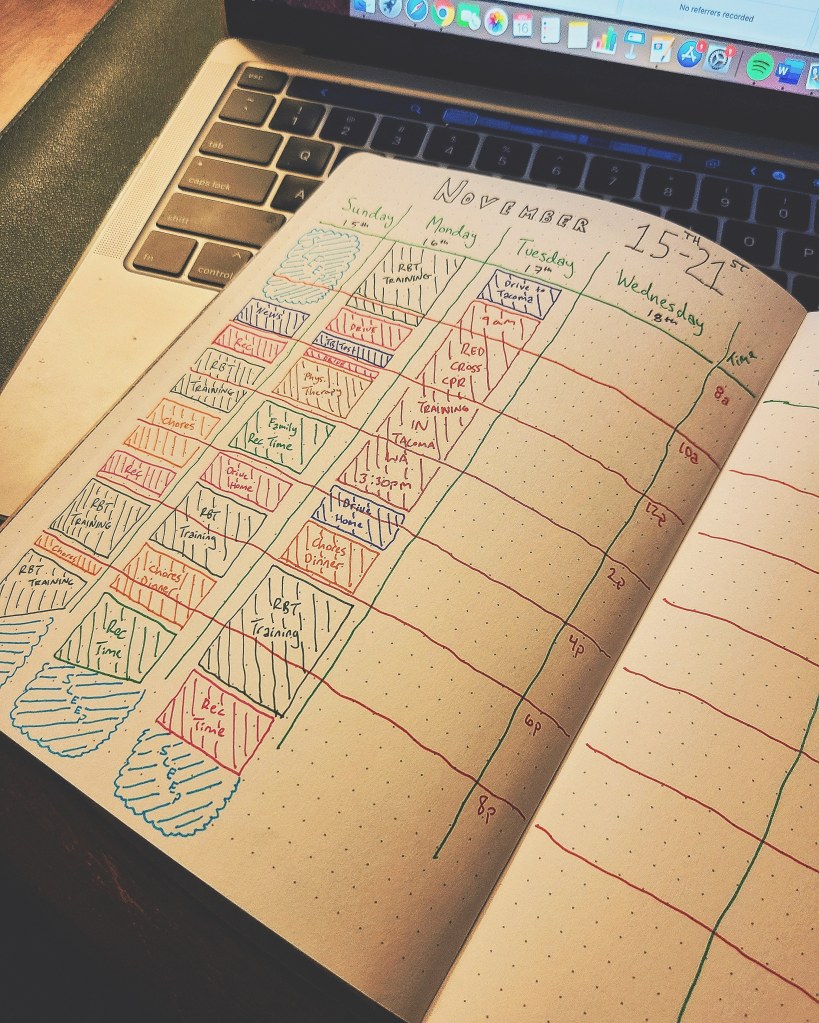 No referrers recorded
16
W
esc
tab
caps lock
shift
fn
control
Q
A
1
2
3
4
5
6
7
8
9
0
O
P
NOVEMBER 15TH-21ST
Sunday
15th
Monday
16th
Tuesday
17th
Wednesday
18th
Time
8a
10a
12p
2p
4p
6p
8p
SLEEP
NEWS
Rec
RBT
TRAINING
Chores
Rec
RBT
TRAINING
Chores
RBT
TRAINING
RBT
TRAINING
DRIVE
TB Test
Phys.
Therapy
Family
Rec Time
Drive
Home
RBT
Training
Chores
Dinner
Rec
Time
SLEEP
Drive to
Tacoma
9am
RED
CROSS
CPR
TRAINING
IN
TACOMA
WA
3:30pm
Drive
Home
Chores
Dinner
RBT
Training
Rec
Time
SLEEP